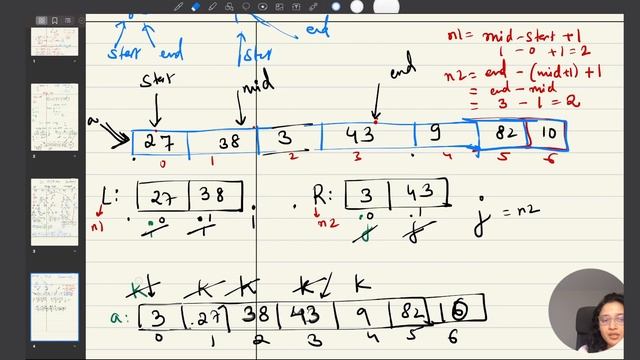 start end start end
n1 = mid - start + 1
1 - 0 + 1 = 2
start mid end
n2 = end - (mid+1) + 1
= end - mid
= 3 - 1 = 2
a 27 38 3 43 9 82 10
0 1 2 3 4 5 6
L: 27 38 R: 3 43
n1 i 0 i 1 i n2 j 0 j 1 j = n2
K K K K K
a: 3 27 38 43 9 82 10
0 1 2 3 4 5 6